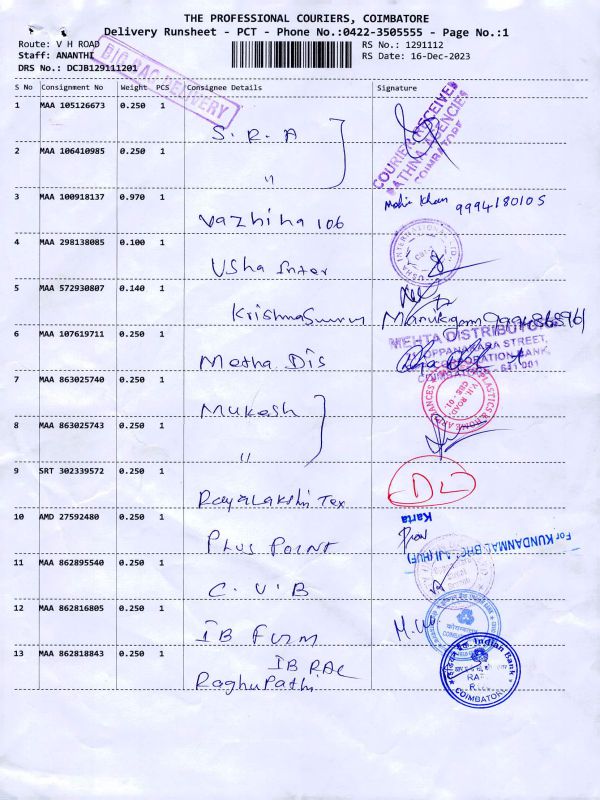 THE PROFESSIONAL COURIERS, COIMBATORE
Delivery Runsheet - PCT - Phone No.:0422-3505555 - Page No.:1
Route: V H ROAD
Staff: ANANTHI
DRS No.: DCJB129111201
RS No.: 1291112
RS Date: 16-Dec-2023
BIG BAG DELIVERY
S No Consignment No Weight PCS Consignee Details Signature
1 MAA 105126673 0.250 1 S. R. A
COURIER RECEIVED
RATHNA AGENCIES
COIMBATORE
2 MAA 106410985 0.250 1 "
3 MAA 100918137 0.970 1 Vazhiha 106
Khan 9994180105
4 MAA 298138085 0.100 1 Usha Inter
USHA INTERNATIONAL LTD.
5 MAA 572930807 0.140 1
6 MAA 107619711 0.250 1 Metha Dis
MEHTA DISTRIBUTORS
OPPANAKARA STREET,
CORPORATION BANK,
COIMBATORE - 641 001
7 MAA 863025740 0.250 1 Mukesh
PLASTICS & HOME APPLIANCES
V.H. ROAD,
CBE - 01.
8 MAA 863025743 0.250 1 "
9 SRT 302339572 0.250 1 Rayalakshi Tex
10 AMD 27592480 0.250 1 Plus Point
For KUNDANMAL BHOLAJI (HUF)
Karta
11 MAA 862895540 0.250 1 C. U. B
12 MAA 862816805 0.250 1 IB Furm
13 MAA 862818843 0.250 1 IB RAC
Raghupathi.
Indian Bank
COIMBATORE